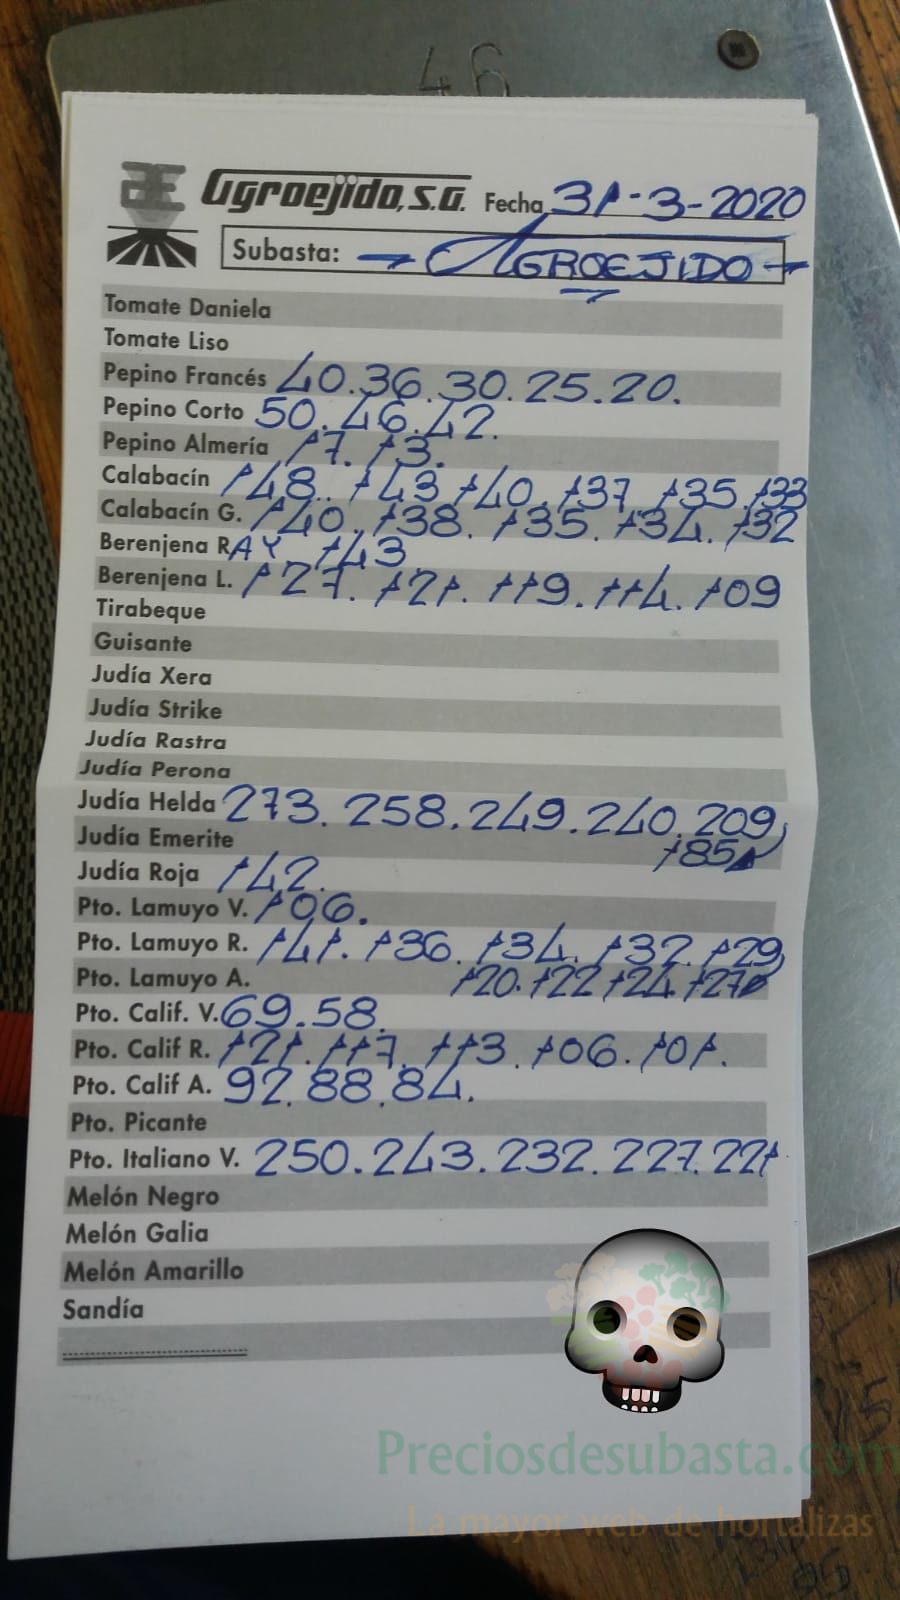 46
Agroejido, S.A. Fecha 31-3-2020
Subasta: → AGROEJIDO →
Tomate Daniela
Tomate Liso
Pepino Francés 40.36.30.25.20.
Pepino Corto 50.46.42.
Pepino Almería 17.13.
Calabacín 148. 143 140. 137 135 133
Calabacín G. 140. 138. 135. 134. 132
Berenjena RAY 143
Berenjena L. 127. 121. 119. 114. 109
Tirabeque
Guisante
Judía Xera
Judía Strike
Judía Rastra
Judía Perona
Judía Helda 273. 258. 249. 240. 209
Judía Emerite 185
Judía Roja 142.
Pto. Lamuyo V. 106.
Pto. Lamuyo R. 141. 136. 134. 132. 129
Pto. Lamuyo A. 120. 122 124. 127
Pto. Calif. V. 69.58.
Pto. Calif R. 121. 117. 113. 106. 101.
Pto. Calif A. 92.88.84.
Pto. Picante
Pto. Italiano V. 250.243.232.227.221
Melón Negro
Melón Galia
Melón Amarillo
Sandía
Preciosdesubasta.com
La mayor web de hortalizas